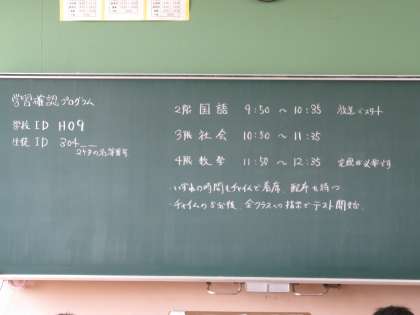 学習確認プログラム
学校 ID H09
生徒 ID 304__
2ケタの名簿番号
2限 国語 9:50 ～ 10:35 放送でスタート
3限 社会 10:50 ～ 11:35
4限 数学 11:50 ～ 12:35 定規が必要です
いずれの時間もチャイムで着席、配布を待つ
チャイムの5分後、全クラス の指示でテスト開始。